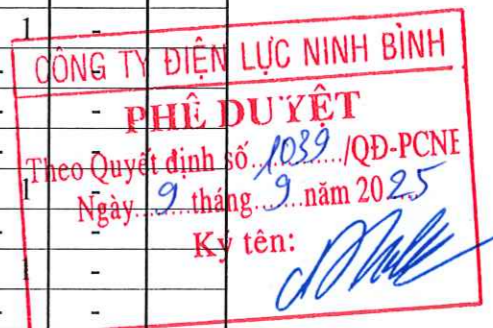 1 -
CÔNG TY ĐIỆN LỰC NINH BÌNH
PHÊ DUYỆT
Theo Quyết định số 1039 /QĐ-PCNB
Ngày 9 tháng 9 năm 2025
1 -
Ký tên:
1 -